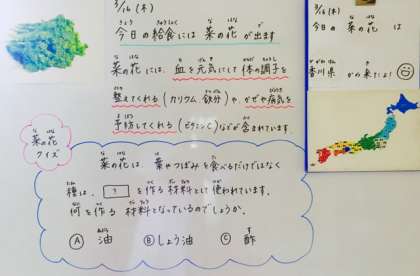 3/16(木)
今日の給食には 菜の花が出ます
菜の花には、血を元気にして体の調子を
整えてくれる(カリウム、鉄分)や、かぜや病気を
予防してくれる(ビタミンC)などが含まれています。
菜の花
クイズ
菜の花は、葉やつぼみを食べるだけではなく
種は、?を作る材料として使われています。
何を作る材料となっているのでしょうか。
Ⓐ 油 Ⓑ しょう油 Ⓒ 酢
3/16(木)
今日の 菜の花 は
香川県 から来たよ!